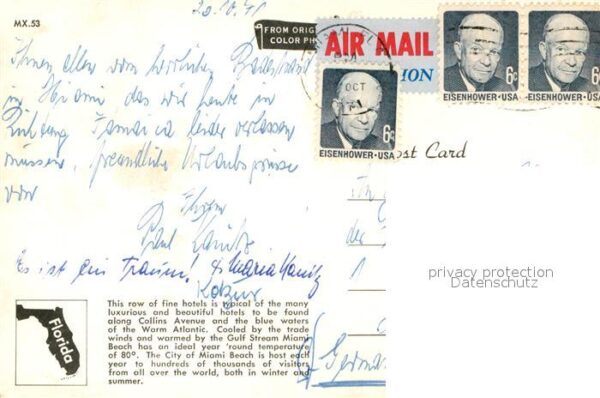 MX.53
FROM ORIG
COLOR PH
AIR MAIL
ION
OCT
6c
EISENHOWER·USA
6c
EISENHOWER·USA
6c
EISENHOWER·USA
Ihnen allen vom herrlichen
in Miami das wir heute in
Richtung Jamaica leider verlassen
müssen, freundliche Urlaubsgrüsse
von Ihrem
Paul
Es ist ein Traum! & Maria
ost Card
privacy protection
Datenschutz
Florida
This row of fine hotels is typical of the many
luxurious and beautiful hotels to be found
along Collins Avenue and the blue waters
of the Warm Atlantic. Cooled by the trade
winds and warmed by the Gulf Stream Miami
Beach has an ideal year 'round temperature
of 80°. The City of Miami Beach is host each
year to hundreds of thousands of visitors
from all over the world, both in winter and
summer.
Germa